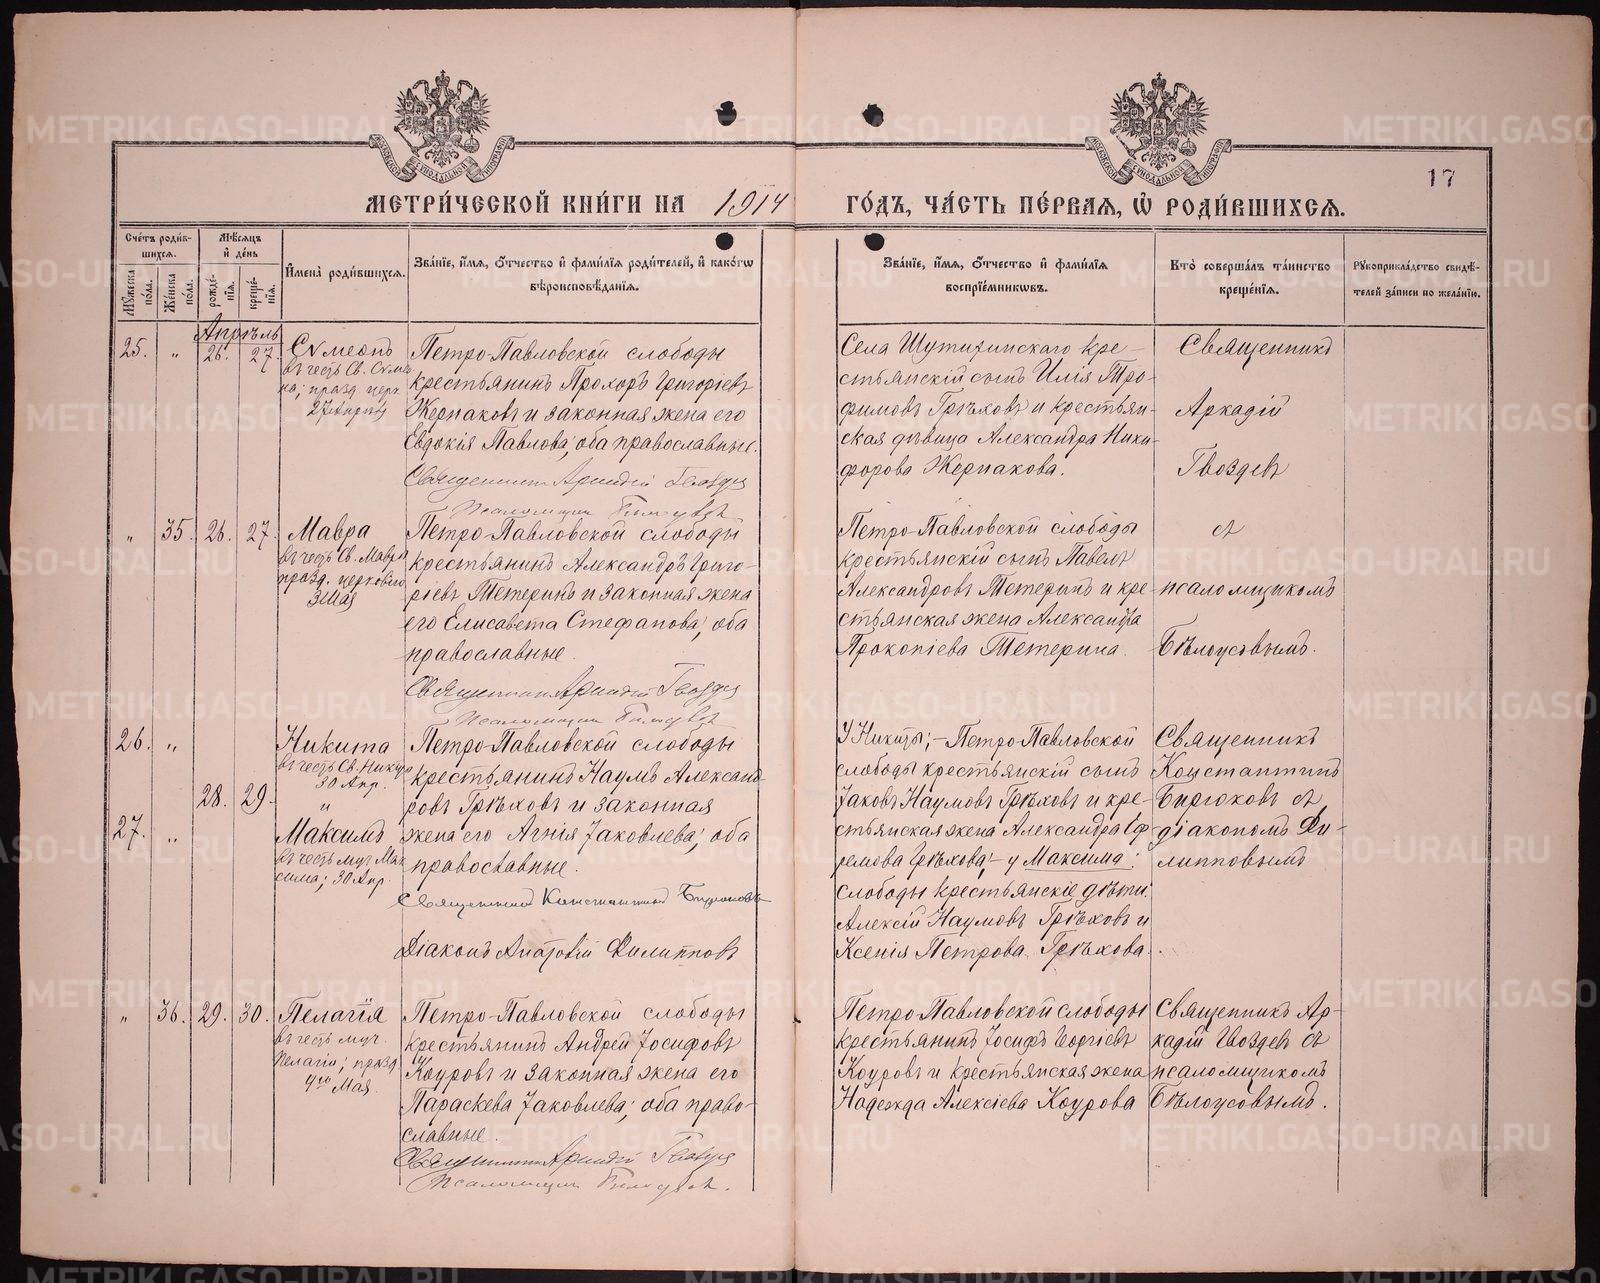 17
МЕТРИЧЕСКОЙ КНИГИ НА 1914 ГОДЪ, ЧАСТЬ ПЕРВАЯ, Ѡ РОДИВШИХСЯ.
Счетъ родив-
шихся.
Мѣсяцъ
и день
Мужеска
пола.
Женска
пола.
рожде-
нія.
креще-
нія.
Имена родившихся.
Званіе, имя, отчество и фамилія родителей, и какогѡ
вѣроисповѣданія.
Званіе, имя, отчество и фамилія
воспріемникѡвъ.
Кто совершалъ таинство
крещенія.
Рукоприкладство свидѣ-
телей записи по желанію.
Апрѣль
25. " 26. 27.
Сѵмеонъ
въ честь Св. Сѵмео
на; празд. церк.
27 Апрѣля
Петро-Павловской слободы
крестьянинъ Прохоръ Григорьевъ
Жернаковъ и законная жена его
Евдокія Павлова, оба православные.
Священникъ Аркадій Гвоздевъ
Псаломщикъ Бѣлоусовъ
Села Шутихинскаго кре-
стьянскій сынъ Илія Тро-
фимовъ Грѣховъ и крестьян-
ская дѣвица Александра Ники-
форова Жернакова.
Священникъ
Аркадій
Гвоздевъ
" 35. 26. 27.
Мавра
въ честь Св. Мавры
празд. церковію
3 Мая
Петро-Павловской слободы
крестьянинъ Александръ Григо-
ріевъ Тетеринъ и законная жена
его Елисавета Стефанова, оба
православные.
Священникъ Аркадій Гвоздевъ
Псаломщикъ Бѣлоусовъ
Петро-Павловской слободы
крестьянскій сынъ Павелъ
Александровъ Тетеринъ и кре-
стьянская жена Александра
Прокопіева Тетерина.
съ
псаломщикомъ
Бѣлоусовымъ.
26. "
Никита
въ честь Св. Никиты
30 Апр.
28. 29.
"
27. "
Максимъ
въ честь муч. Мак
сима; 30 Апр.
Петро-Павловской слободы
крестьянинъ Наумъ Александ
ровъ Грѣховъ и законная
жена его Агнія Іаковлева, оба
православные.
Священникъ Константинъ Бирюковъ
Діаконъ Анатолій Филипповъ
У Никиты;- Петро-Павловской
слободы крестьянскій сынъ
Іаковъ Наумовъ Грѣховъ и кре-
стьянская жена Александра Еф
ремова Грѣхова;- у Максима:
слободы крестьянскіе дѣти:
Алексій Наумовъ Грѣховъ и
Ксенія Петрова Грѣхова.
Священникъ
Константинъ
Бирюковъ съ
діакономъ Фи-
липповымъ
" 36. 29. 30.
Пелагія
въ честь муч.
Пелагіи; празд.
4го Мая.
Петро-Павловской слободы
крестьянинъ Андрей Іосифовъ
Коуровъ и законная жена его
Параскева Іаковлева; оба право-
славные.
Священникъ Аркадій Гвоздевъ
Псаломщикъ Бѣлоусовъ.
Петро-Павловской слободы
крестьянинъ Іосифъ Георгіевъ
Коуровъ и крестьянская жена
Надежда Алексіева Коурова
Священникъ Ар-
кадій Гвоздевъ съ
псаломщикомъ
Бѣлоусовымъ.
METRIKI.GASO-URAL.RU